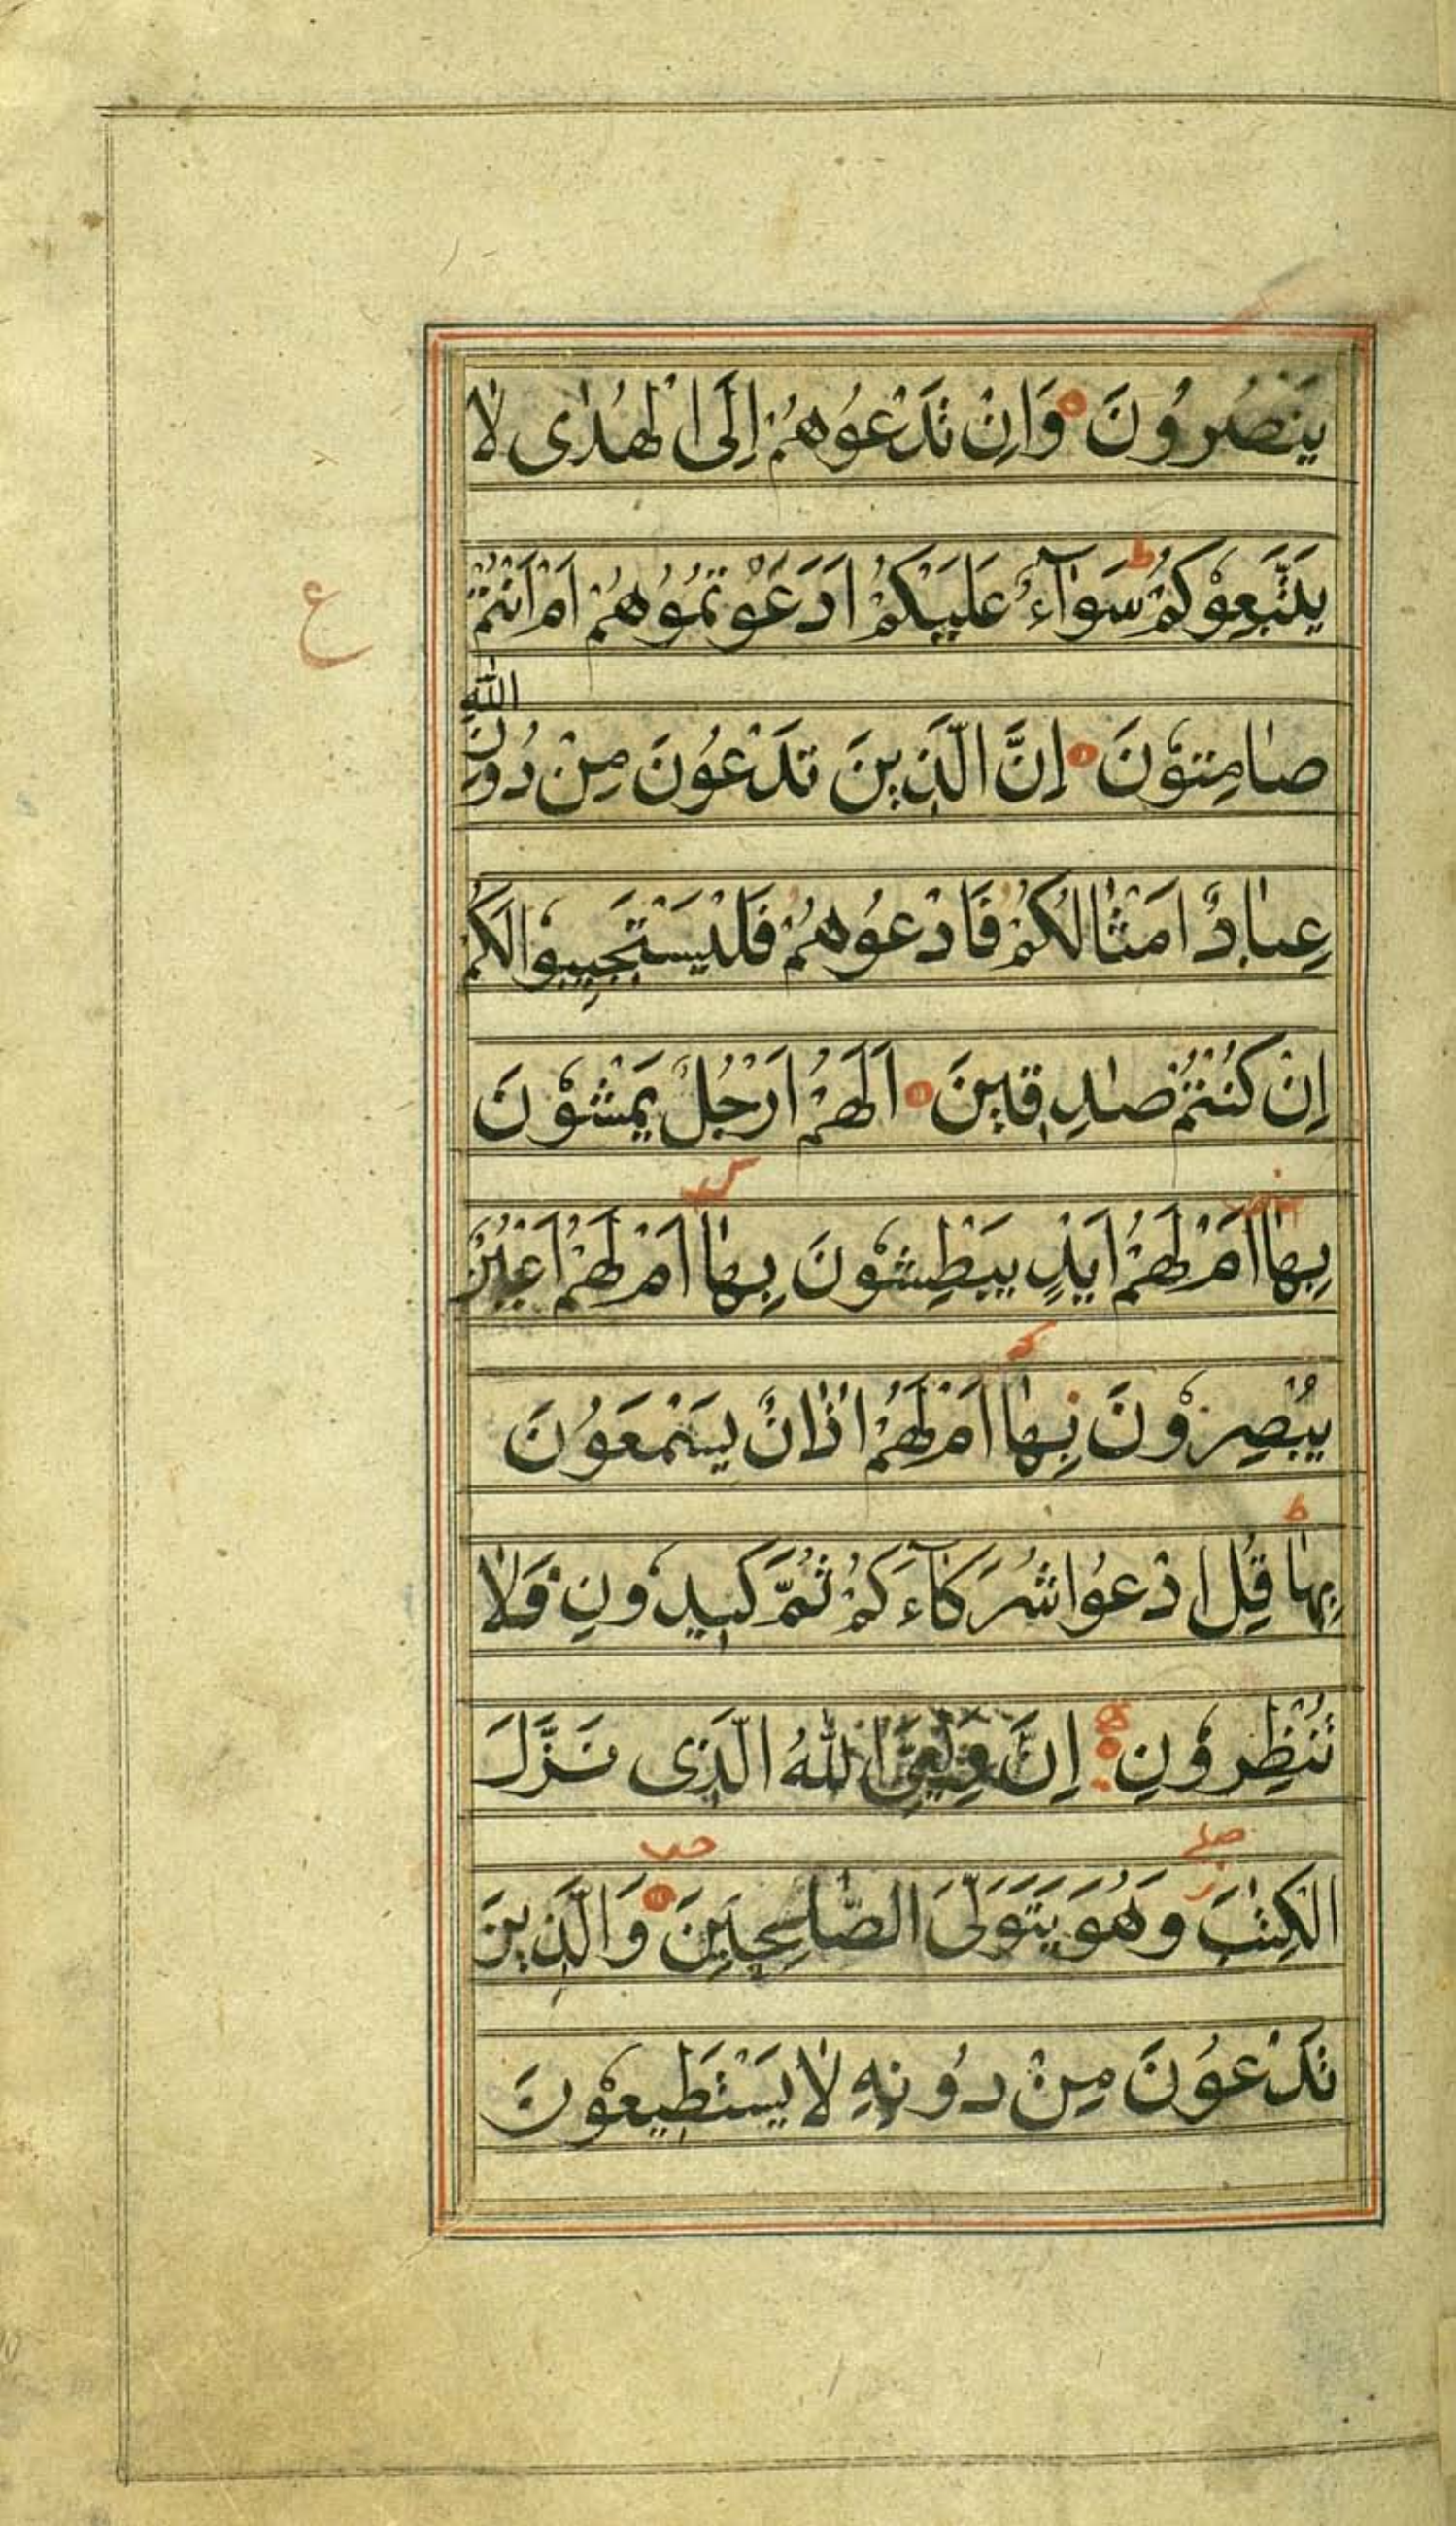 يَنْصُرُونَ وَاِنْ تَدْعُوهُمْ اِلَى الْهُدٰى لَا
يَتَّبِعُوكُمْ ط سَوَآءٌ عَلَيْكُمْ اَدَعَوْتُمُوُهُمْ اَمْ اَنْتُمْ
ع
صٰامِتُوْنَ اِنَّ الَّذِينَ تَدْعُونَ مِنْ دُونِ اللّٰهِ
عِبٰادٌ اَمْثٰالُكُمْ فَادْعُوهُمْ فَلْيَسْتَجِيبُوا لَكُمْ
اِنْ كُنْتُمْ صٰدِقِينَ اَلَهُمْ اَرْجُلٌ يَمْشُوْنَ
بِهٰا اَمْ لَهُمْ اَيْدٍ يَبْطِشُوْنَ بِهٰا اَمْ لَهُمْ اَعْيُنٌ
يُبْصِرُوْنَ بِهٰا اَمْ لَهُمْ اٰذٰانٌ يَسْمَعُوْنَ
بِهٰا ط قُلِ ادْعُوا شُرَكَآءَكُمْ ثُمَّ كِيدُونِ فَلَا
تُنْظِرُوْنِ اِنَّ وَلِيِّىَ اللّٰهُ الَّذِى نَزَّلَ
الْكِتٰبَ وَهُوَ يَتَوَلَّى الصّٰلِحِينَ وَالَّذِينَ
تَدْعُونَ مِنْ دُونِهِ لَا يَسْتَطِيعُوْنَ